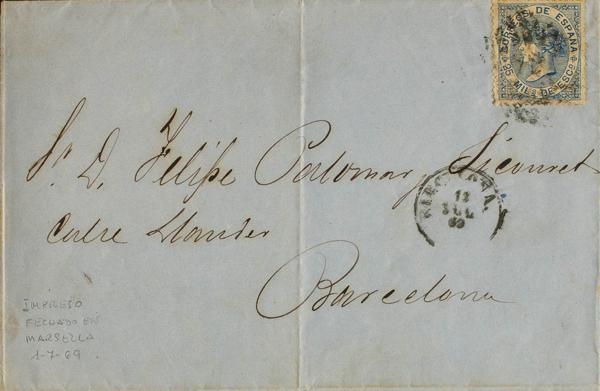 CORREOS DE ESPAÑA
25 MILS DE ESCO
Sr. D. Felipe Palomar y Licouret
BARCELONA.
12
JUL
69
Calle Llauder
Barcelona
IMPRESO
FECHADO EN
MARSELLA
1-7-69